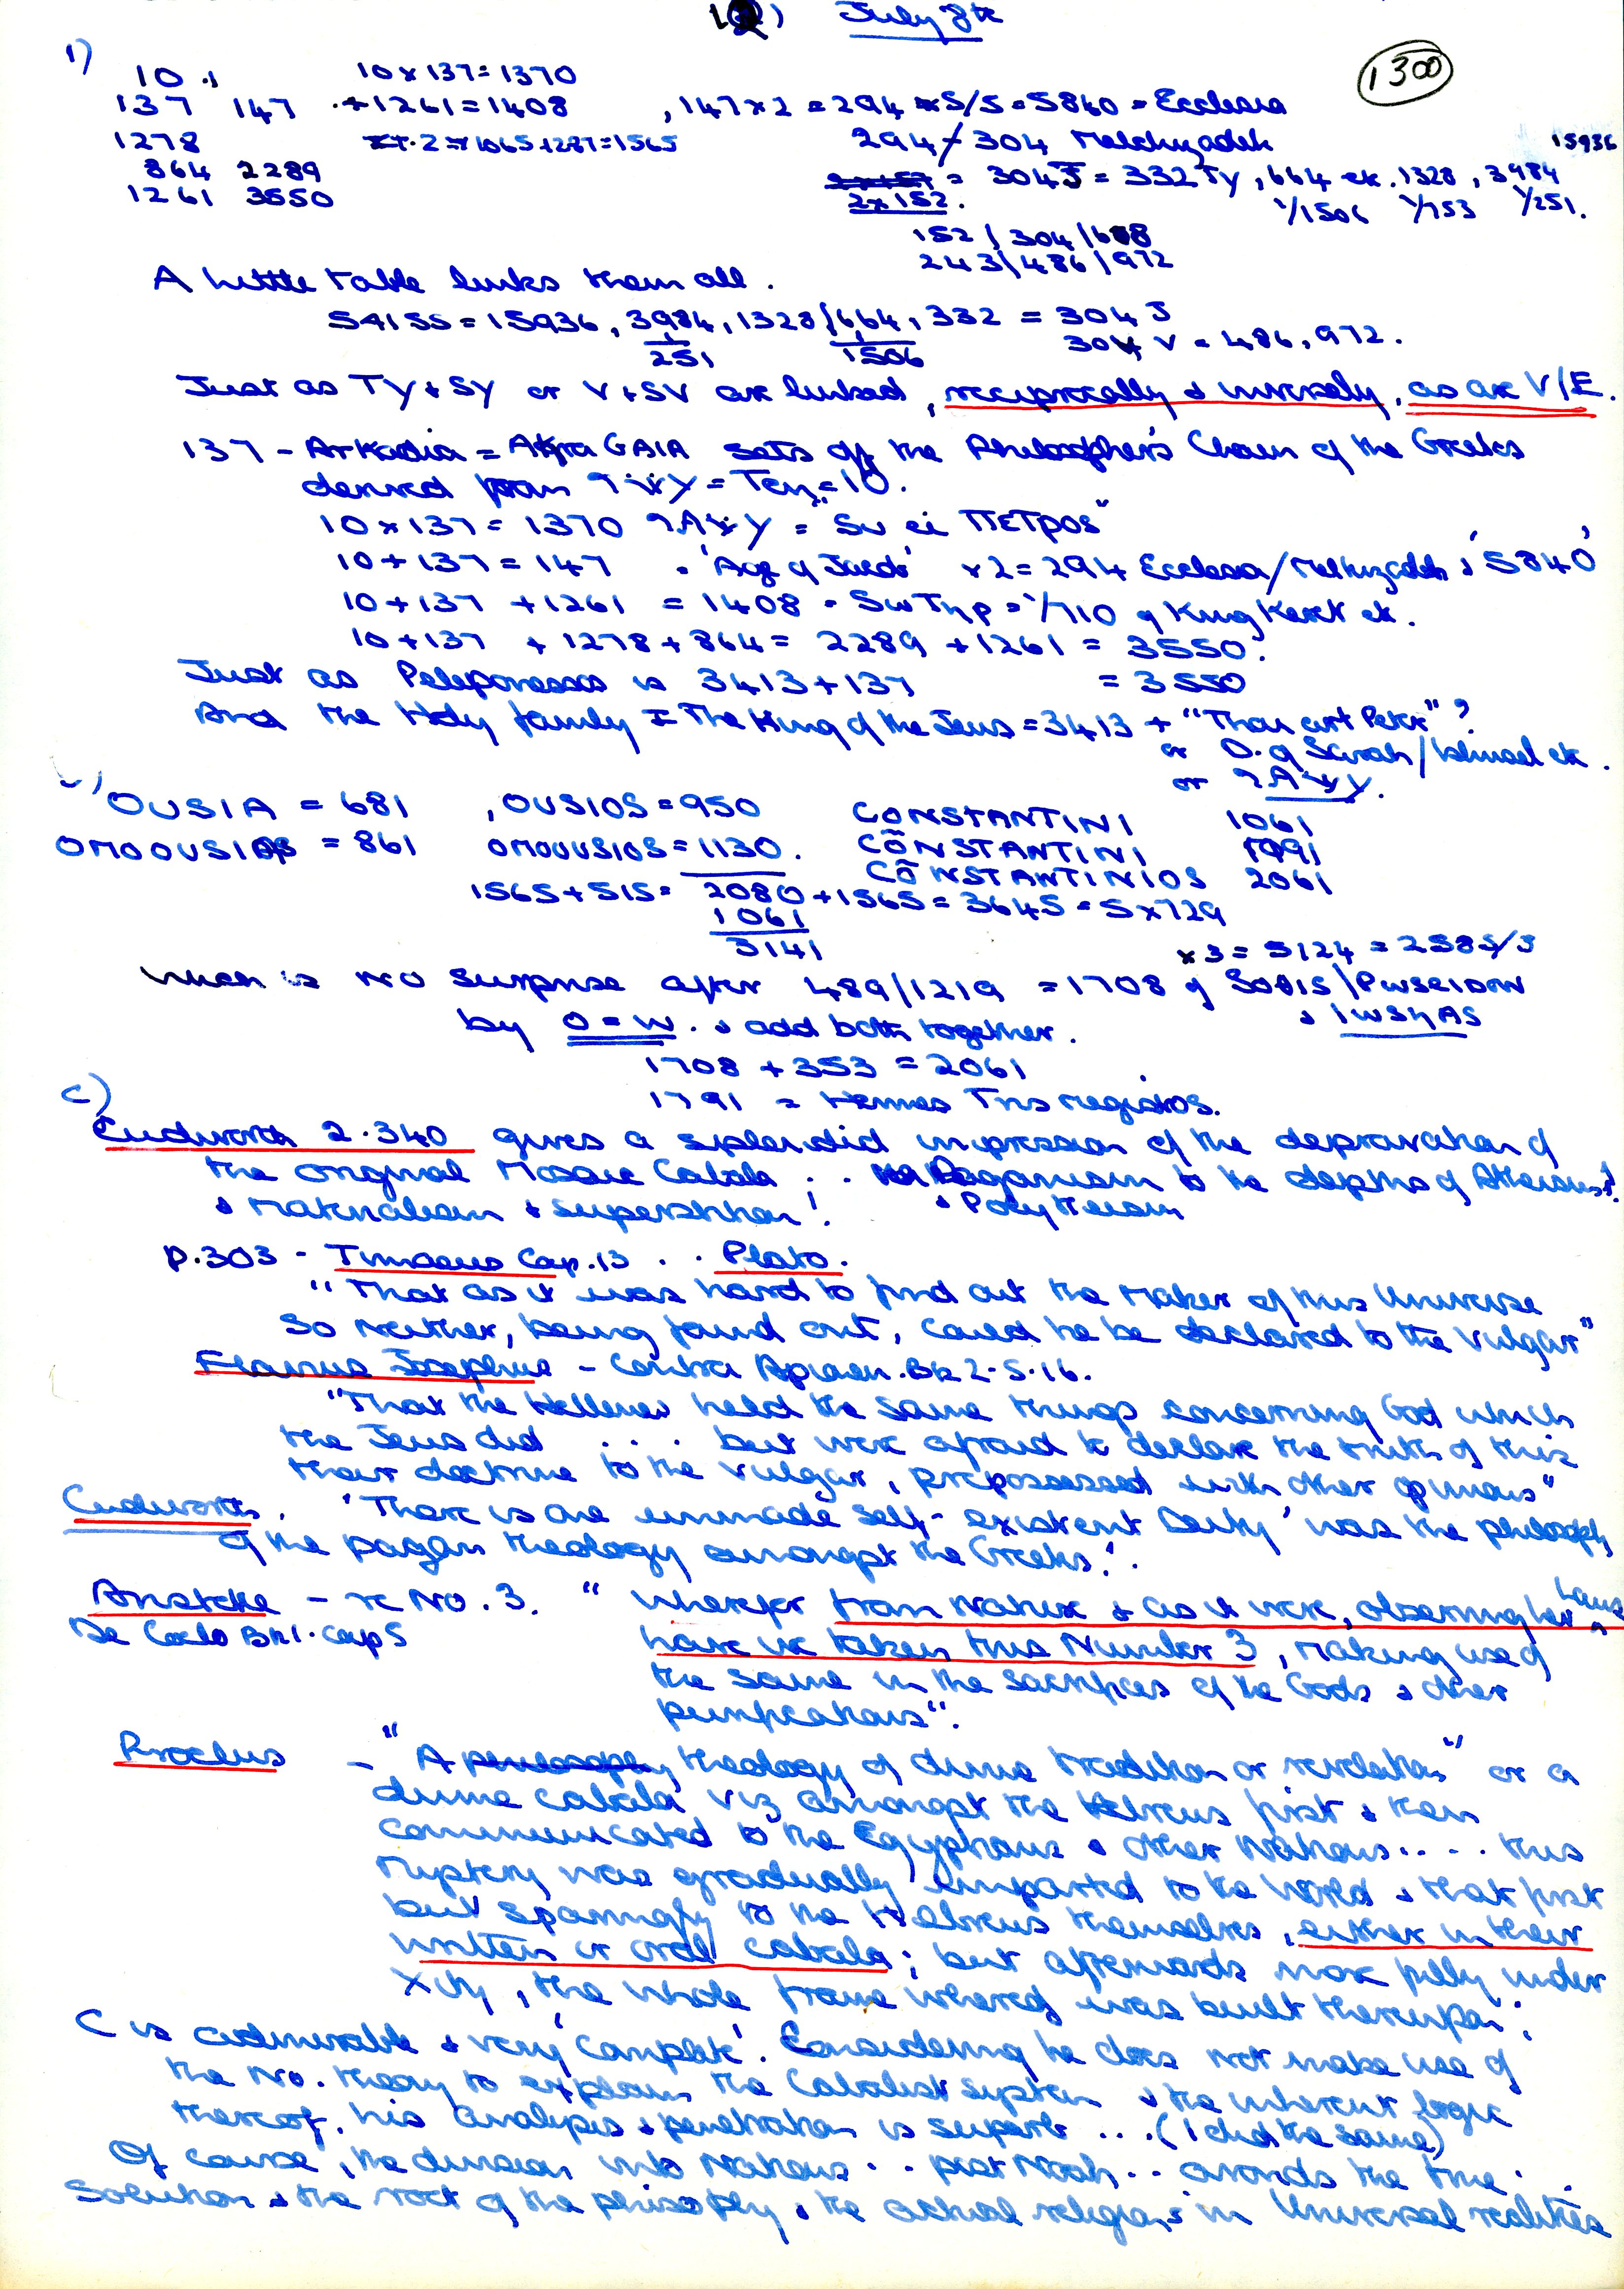 July 8th
1300
1)
10 10 x 137 = 1370
137 147 + 1261 = 1408 , 147 x 2 = 294 S/S = 5840 = Ecclesia
1278 . 2 = 1065 + 287 = 1565 294/304 Melchizadek 15936
864 2289 = 304 J = 332 Ty , 664 etc. 1328 , 3984
1261 3550 2 x 152. 1/1506 1/753 1/251.
152 / 304 / 608
243 / 486 / 972
A little table links them all.
S4155 = 15936, 3984, 1328 / 664, 332 = 304 J
251 1506 304 V = 486, 972.
Just as Ty + Sy or V + SV are linked, reciprocally & inversely, as are V/E.
137 - Arkadia = Akra GAIA sets off the Philosopher's Chain of the Greeks
derived from = Ten = 10.
10 x 137 = 1370 = "Su ei ΠΕΤροS"
10 + 137 = 147 = 'Age of Jacob' x 2 = 294 Ecclesia/Melkizadek & '5840'
10 + 137 + 1261 = 1408 = SwTηρ = 1/710 of King etc.
10 + 137 + 1278 + 864 = 2289 + 1261 = 3550.
Just as Peloponessos is 3413 + 137 = 3550
And the Holy family = The King of the Jews = 3413 + "Thou art Peter"?
or D. of Sarah/Ishmael etc.
or
OUSIA = 681 , OUSIOS = 950 CONSTANTINI 1061
= 861 OMOOUSIOS = 1130. CÕNSTANTINI 1791
CÕNSTANTINIOS 2061
1565 + 515 = 2080 + 1565 = 3645 = 5 x 729
1061
3141 x 3 = 5124 = 258 S/J
which is no surprise after 489/1219 = 1708 of SoθIS / PwseIDON
by O = W. & add both together. & IWSηAS
1708 + 353 = 2061
1791 = Hermes Trismegistos.
C)
Cudworth 2.340 gives a splendid impression of the depravation of
the original Mosaic Cabala . . Paganism to the depths of Atheism!
& Materialism & superstition! & Polytheism
p.303 - Timaeus Cap.13 . . Plato.
"That as it was hard to find out the Maker of this Universe
So neither, being found out, could he be declared to the vulgar"
Flavius Josephus - Contra Apion. Bk 2.S.16.
"That the Hellenes held the same things concerning God which
the Jews did . . . . but were afraid to declare the truth of this
their doctrine to the vulgar, prepossessed with other opinions"
Cudworth. 'There is one unmade self-existent Deity' was the philosophy
of the pagan theology amongst the Greeks.'
Aristotle - re No. 3. "Wherefor from Nature & as it were, observing her Laws
De Coelo Bk 1. cap 5 have we taken this Number 3, making use of
the same in the sacrifices of the Gods & other
purifications".
Proclus - "A theology of divine tradition or revelation" or a
divine cabala viz amongst the Hebrews first & then
communicated to the Egyptians & other Nations . . . . this
mystery was gradually imparted to the World & that first
but sparingly to the Hebrews themselves, either in their
written or oral cabala; but afterwards more fully under
Xty, the whole frame whereof was built thereupon;
C is admirable & very 'complete'. Considering he does not make use of
the No. theory to explain the Cabalist system & the inherent logic
thereof, his analysis & penetration is superb . . . (I did the same)
Of course, the division into Nations . . post Noah . . avoids the true
solution & the root of the philosophy & the actual religions in Universal realities